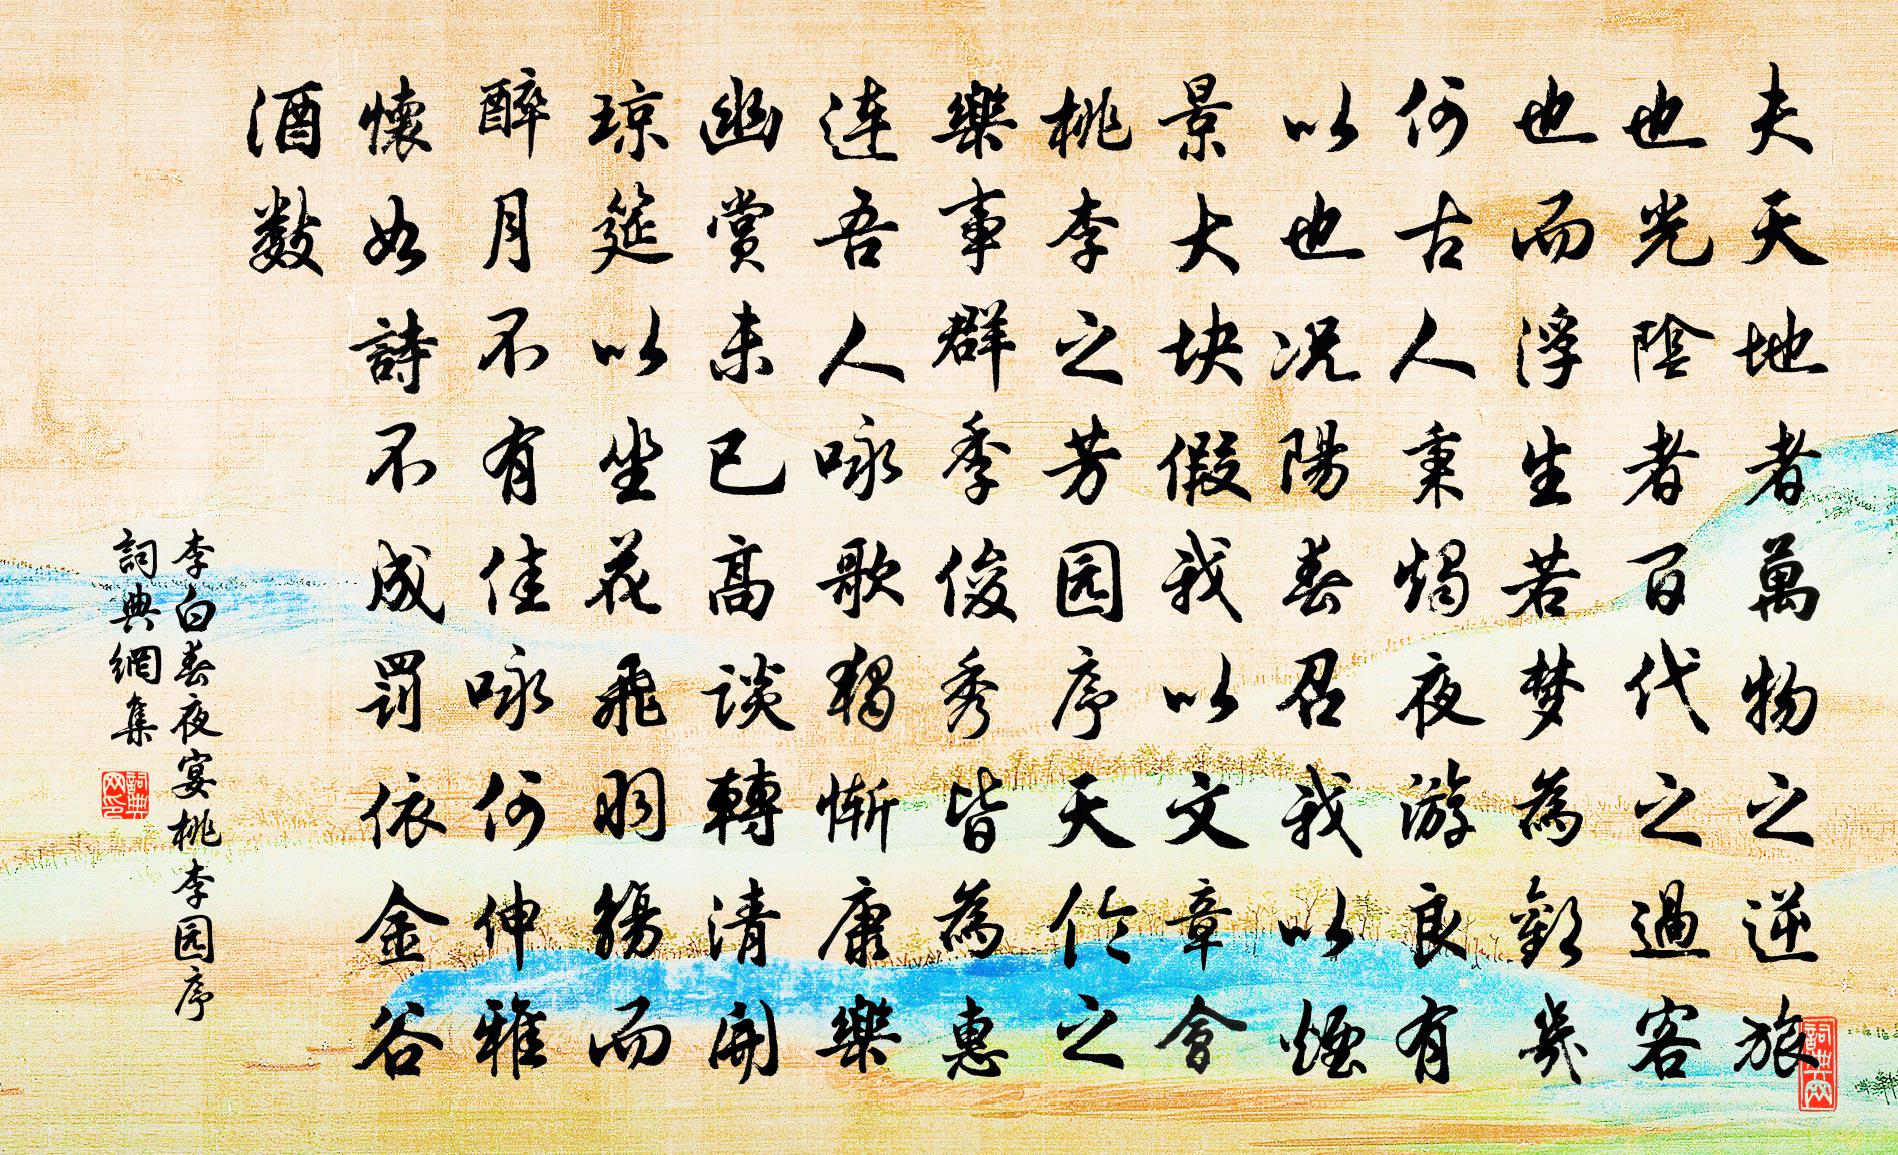 夫天地者萬物之逆旅
也光陰者百代之過客
也而浮生若梦為歡幾
何古人秉燭夜游良有
以也况陽春召我以煙
景大块假我以文章會
桃李之芳园序天伦之
樂事群季俊秀皆為惠
連吾人咏歌獨惭康樂
幽赏未已高談轉清開
琼筵以坐花飛羽觴而
醉月不有佳咏何伸雅
懷如詩不成罰依金谷
酒數
李白春夜宴桃李园序
詞典網集
詞典网印
詞典网